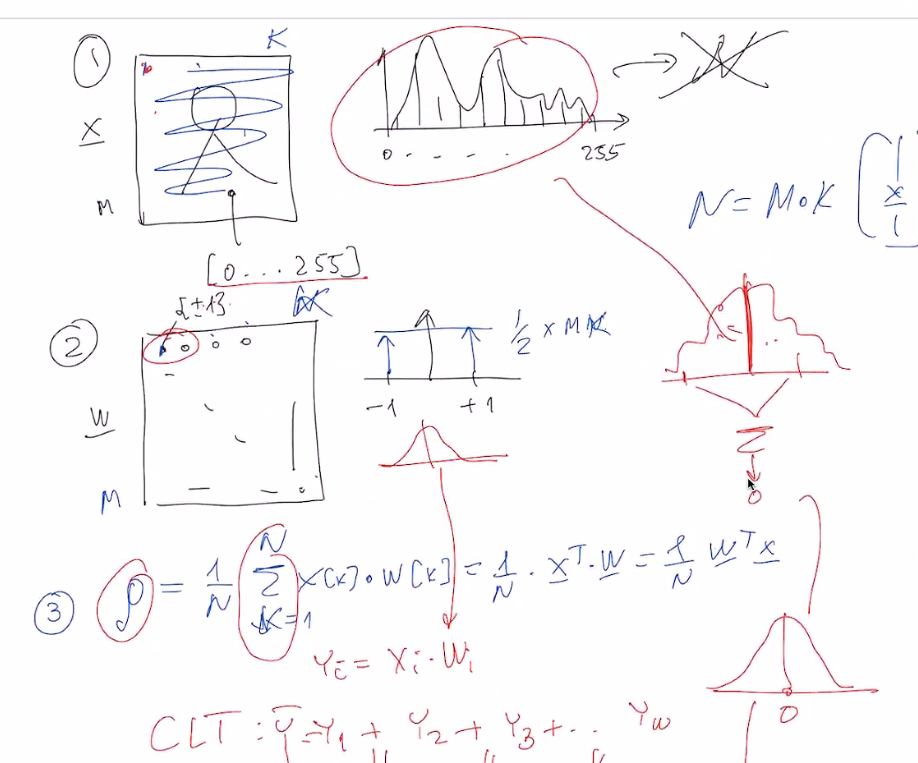 ① K
X
M
0 - - - . 255
[0...255]
N = M∘K [x
{±1} K
②
1/2 × M K
W
-1 +1
M
Σ
0
③ ρ = 1/N Σ N K=1 x[k]∘w[k] = 1/N · x^T·w = 1/N w^T x
Yi = Xi·Wi
0
CLT: Y=Y1 + Y2 + Y3 + .. YN